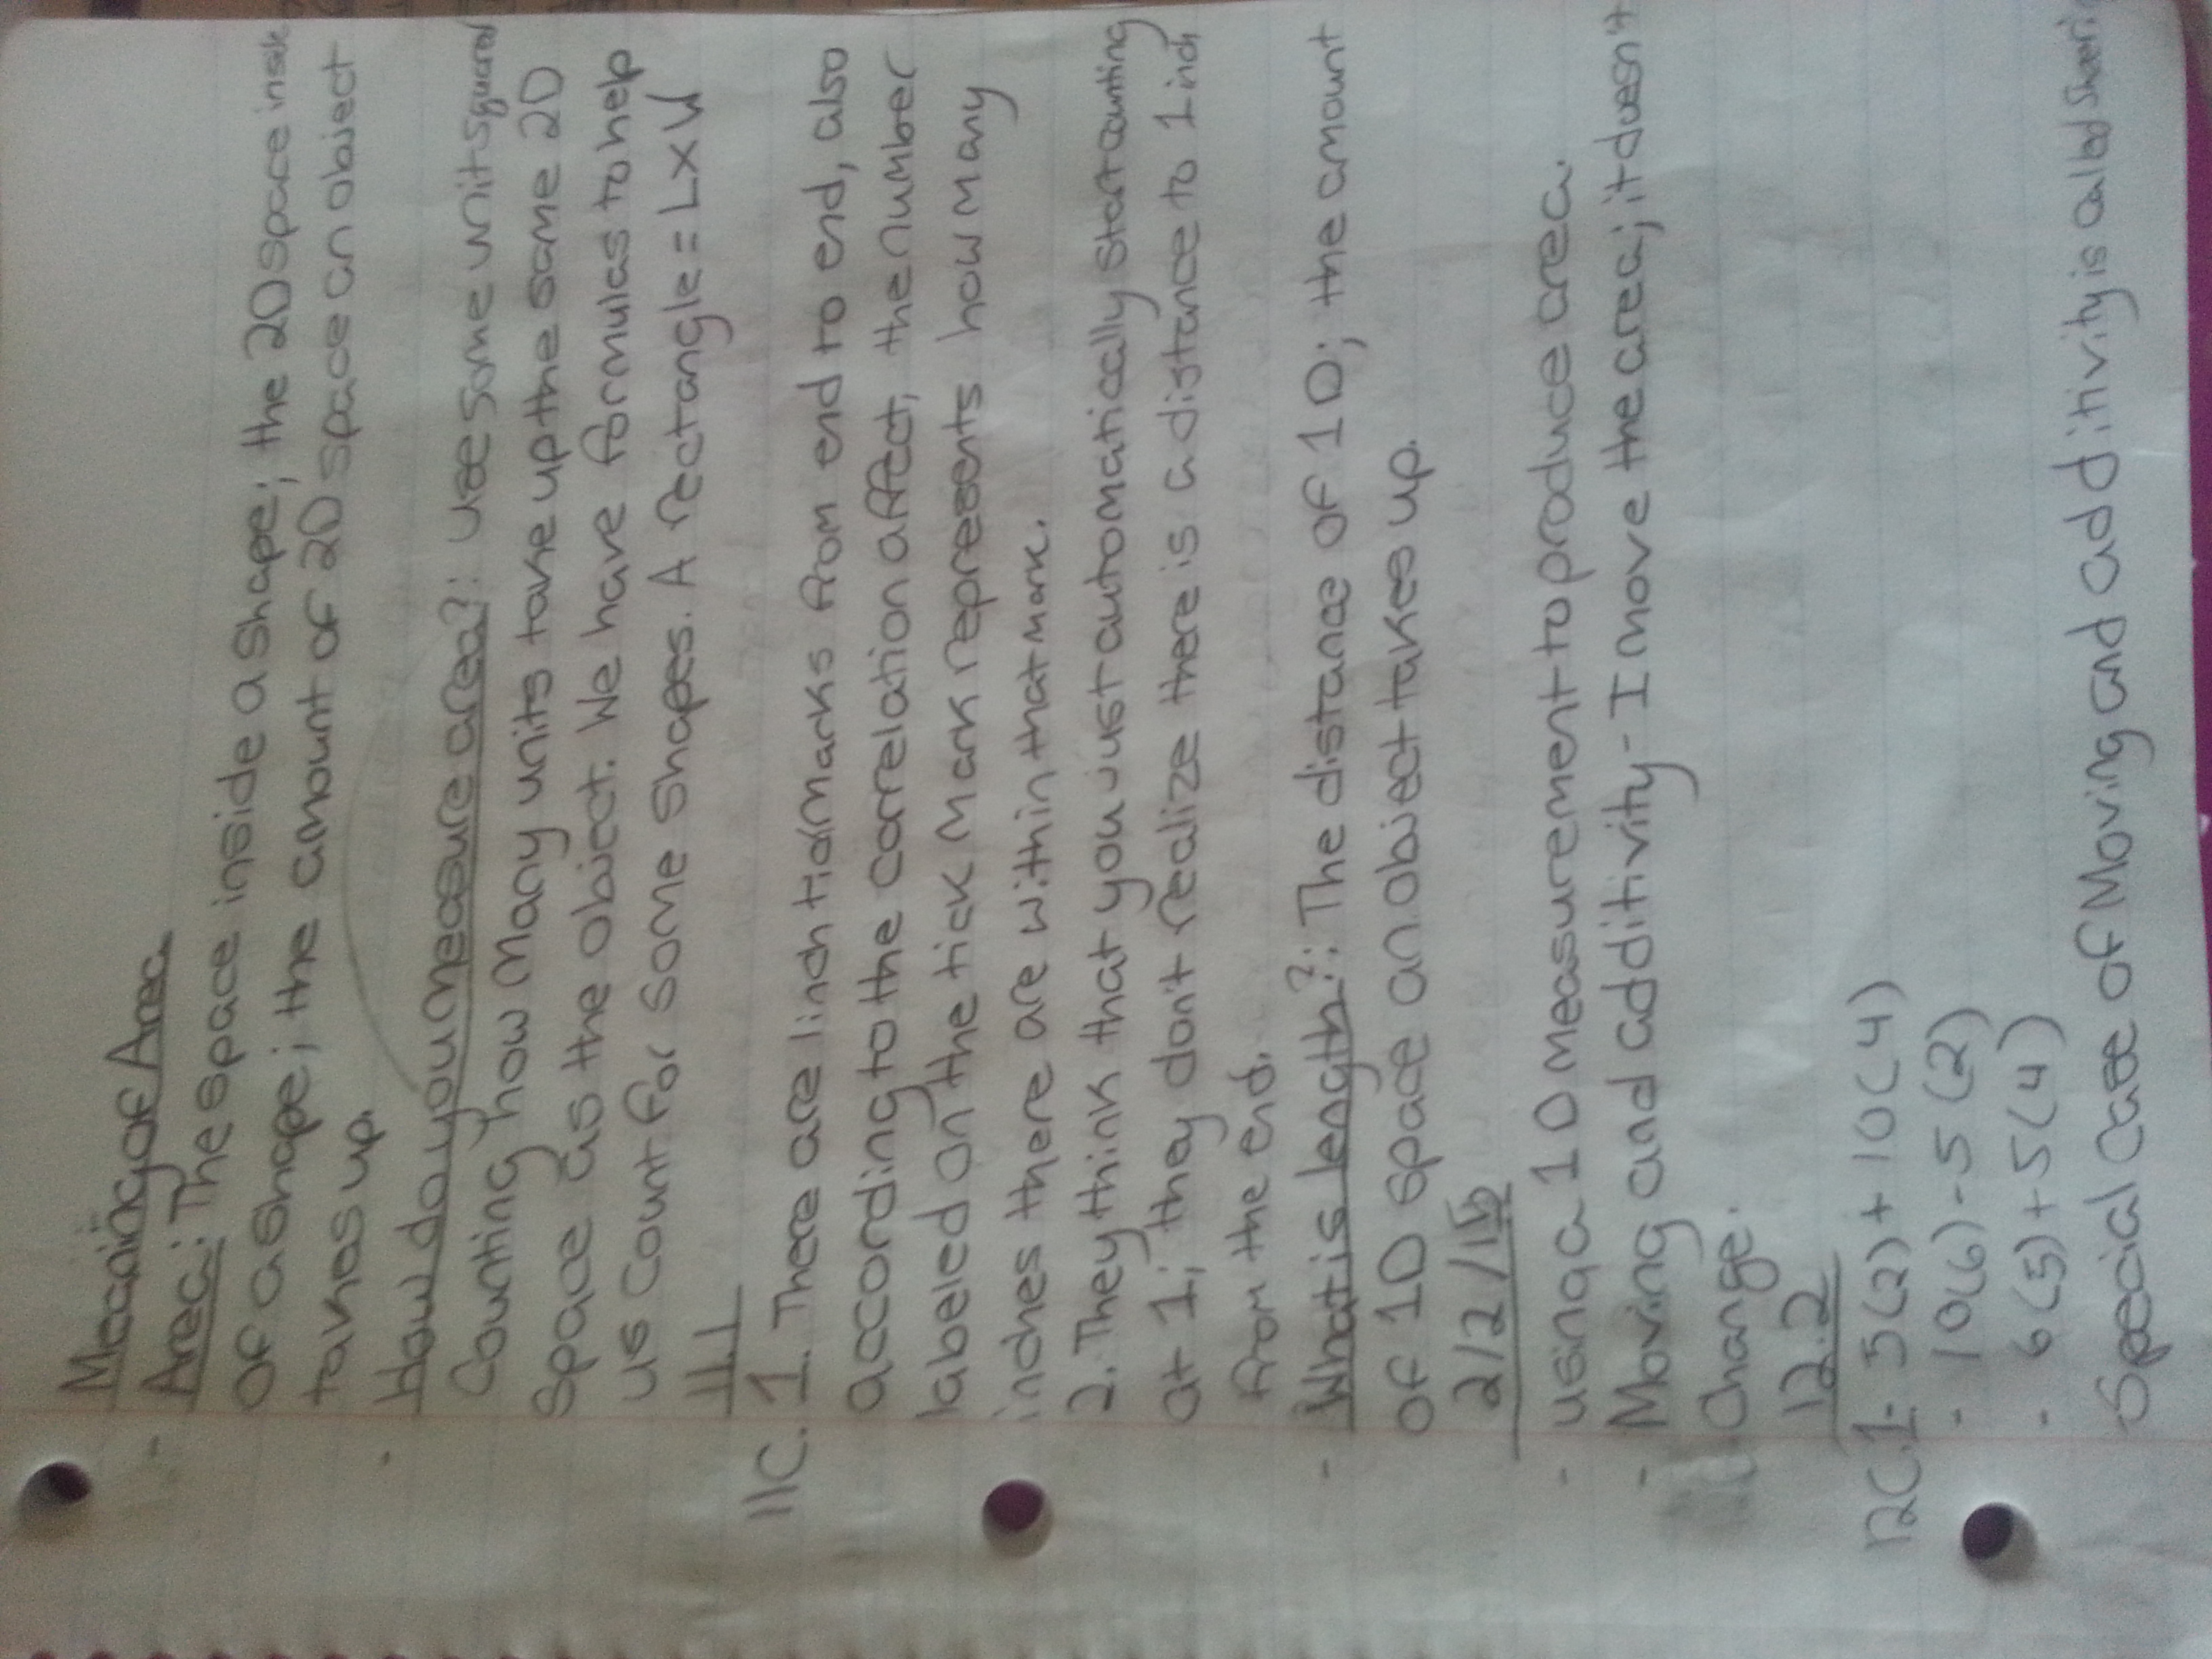 Meaning of Area
- Area: The space inside a shape; the 2D space inside
of a shape; the amount of 2D space an object
takes up.
- How do you measure area?: use some unit squares
Counting how many units take up the same 2D
space as the object. We have formulas to help
us count for some shapes. A rectangle = L x W
11.1
11C. 1. There are 1 inch tick marks from end to end, also
according to the correlation affect, the number
labeled on the tick mark represents how many
inches there are within that mark.
2. They think that you just automatically start counting
at 1; they don't realize there is a distance to 1 inch
from the end.
- What is length?: The distance of 1D; the amount
of 1D space an object takes up.
2/2/15
- using a 1D measurement to produce area.
- Moving and additivity - I move the area; it doesn't
change.
12.2
12C1. 5(2) + 10(4)
- 10(6) - 5(2)
- 6(5) + 5(4)
Special case of Moving and additivity is called